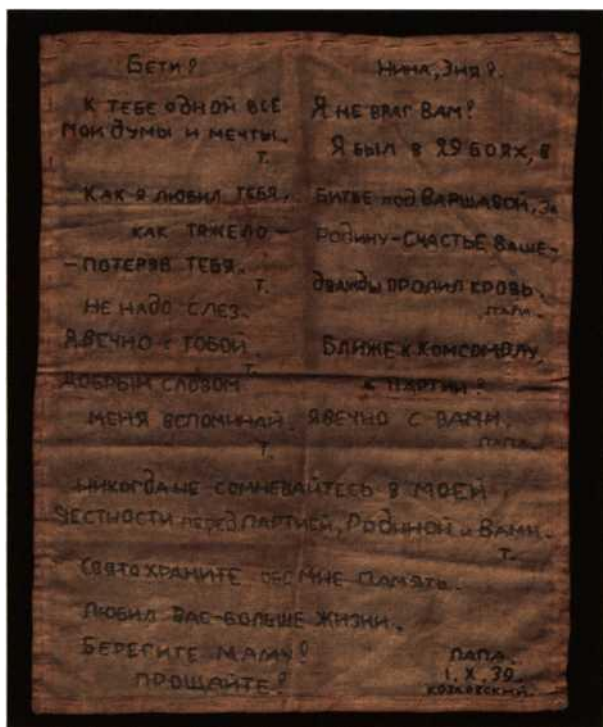 Бети!
К ТЕБЕ ОДНОЙ ВСЕ
МОИ ДУМЫ И МЕЧТЫ.
Т.
КАК Я ЛЮБИЛ ТЕБЯ,
КАК ТЯЖЕЛО –
– ПОТЕРЯВ ТЕБЯ.
Т.
НЕ НАДО СЛЕЗ.
Я ВЕЧНО С ТОБОЙ.
Т.
ДОБРЫМ СЛОВОМ
МЕНЯ ВСПОМИНАЙ.
Т.
НИНА, ЭНЯ!
Я НЕ ВРАГ ВАМ!
Я БЫЛ В 29 БОЯХ, В
БИТВЕ ПОД ВАРШАВОЙ, ЗА
РОДИНУ – СЧАСТЬЕ ВАШЕ –
ДВАЖДЫ ПРОЛИЛ КРОВЬ.
ПАПА.
БЛИЖЕ К КОМСОМОЛУ,
К ПАРТИИ!
Я ВЕЧНО С ВАМИ.
ПАПА.
НИКОГДА НЕ СОМНЕВАЙТЕСЬ В МОЕЙ
ЧЕСТНОСТИ ПЕРЕД ПАРТИЕЙ, РОДИНОЙ и ВАМИ.
Т.
СВЯТО ХРАНИТЕ ОБО МНЕ ПАМЯТЬ.
ЛЮБИЛ ВАС – БОЛЬШЕ ЖИЗНИ.
БЕРЕГИТЕ МАМУ!
ПРОЩАЙТЕ!
ПАПА.
1.X.39.
КОЗЛОВСКИЙ.